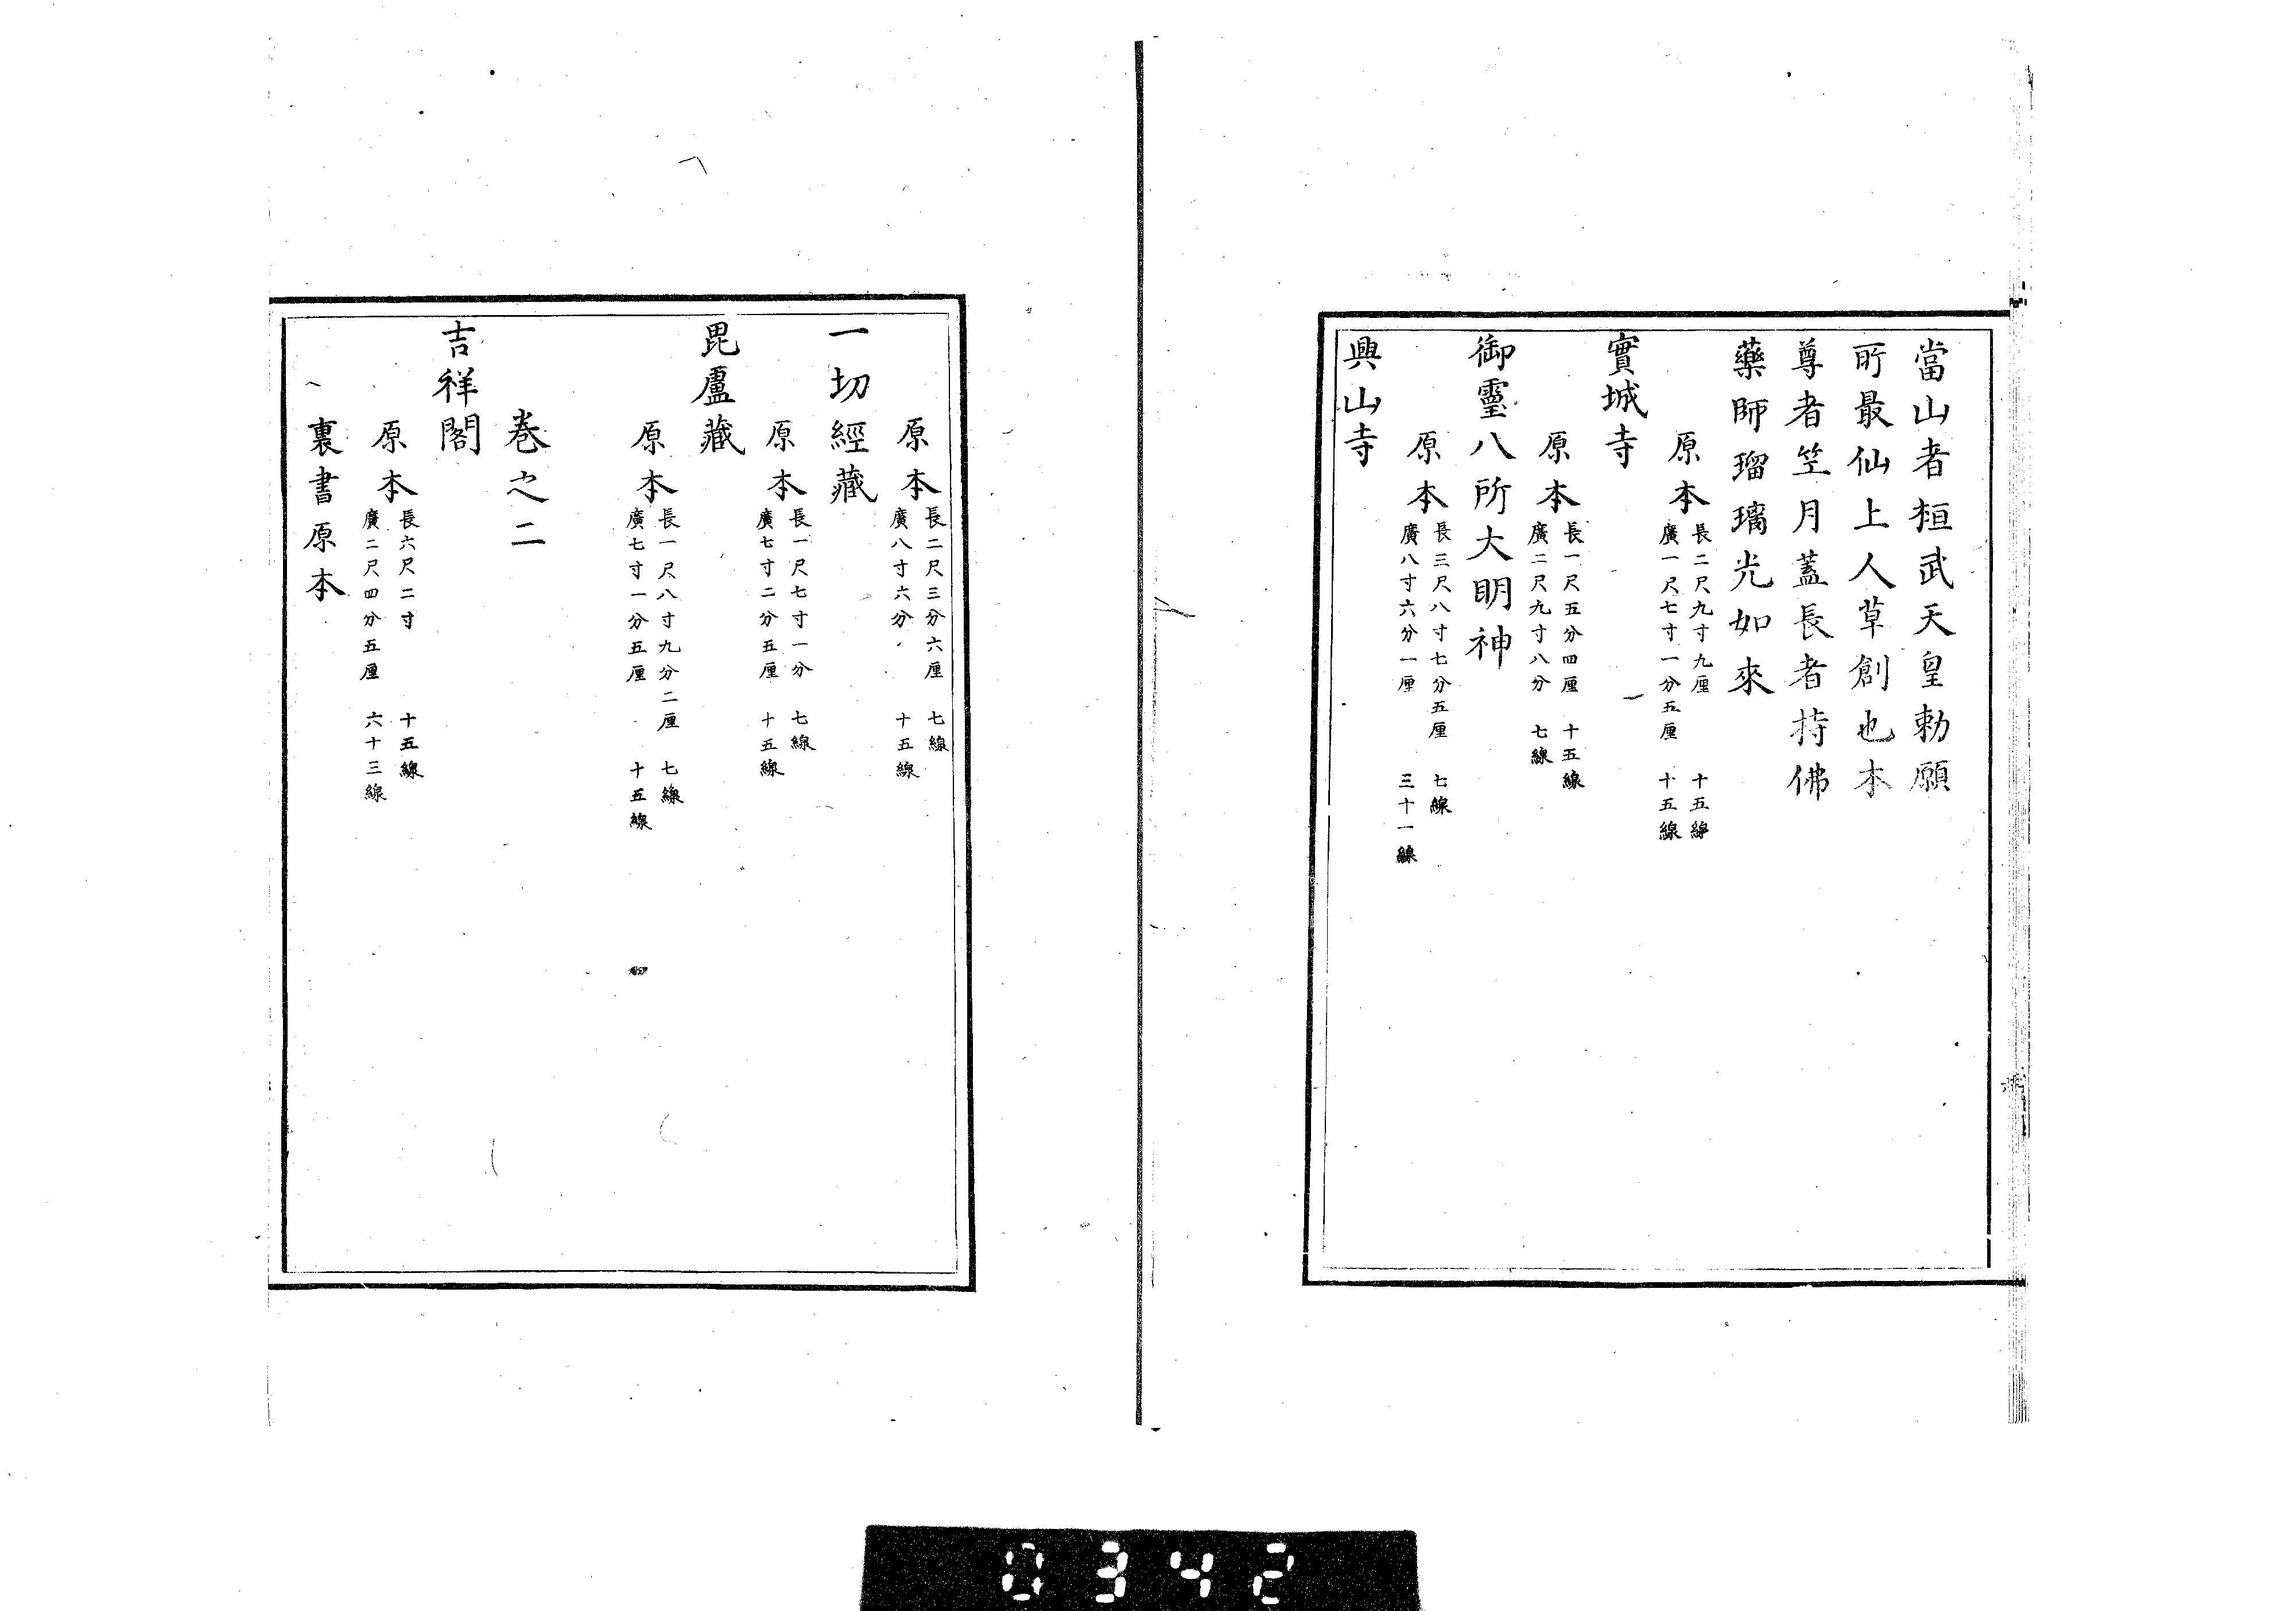 當山者桓武天皇勅願
所最仙上人草創也本
尊者笠月蓋長者持佛
藥師瑠璃光如來
原本 長二尺九寸九厘 十五線
廣一尺七寸一分五厘 十五線
實城寺
原本 長一尺五分四厘 十五線
廣二尺九寸八分 七線
御靈八所大明神
原本 長三尺八寸七分五厘 七線
廣八寸六分一厘 三十一線
興山寺
原本 長二尺三分六厘 七線
廣八寸六分 十五線
一切經藏
原本 長一尺七寸一分 七線
廣七寸二分五厘 十五線
毘盧藏
原本 長一尺八寸九分二厘 七線
廣七寸一分五厘 十五線
卷之二
吉祥閣
原本 長六尺二寸 十五線
廣二尺四分五厘 六十三線
裏書原本
0342